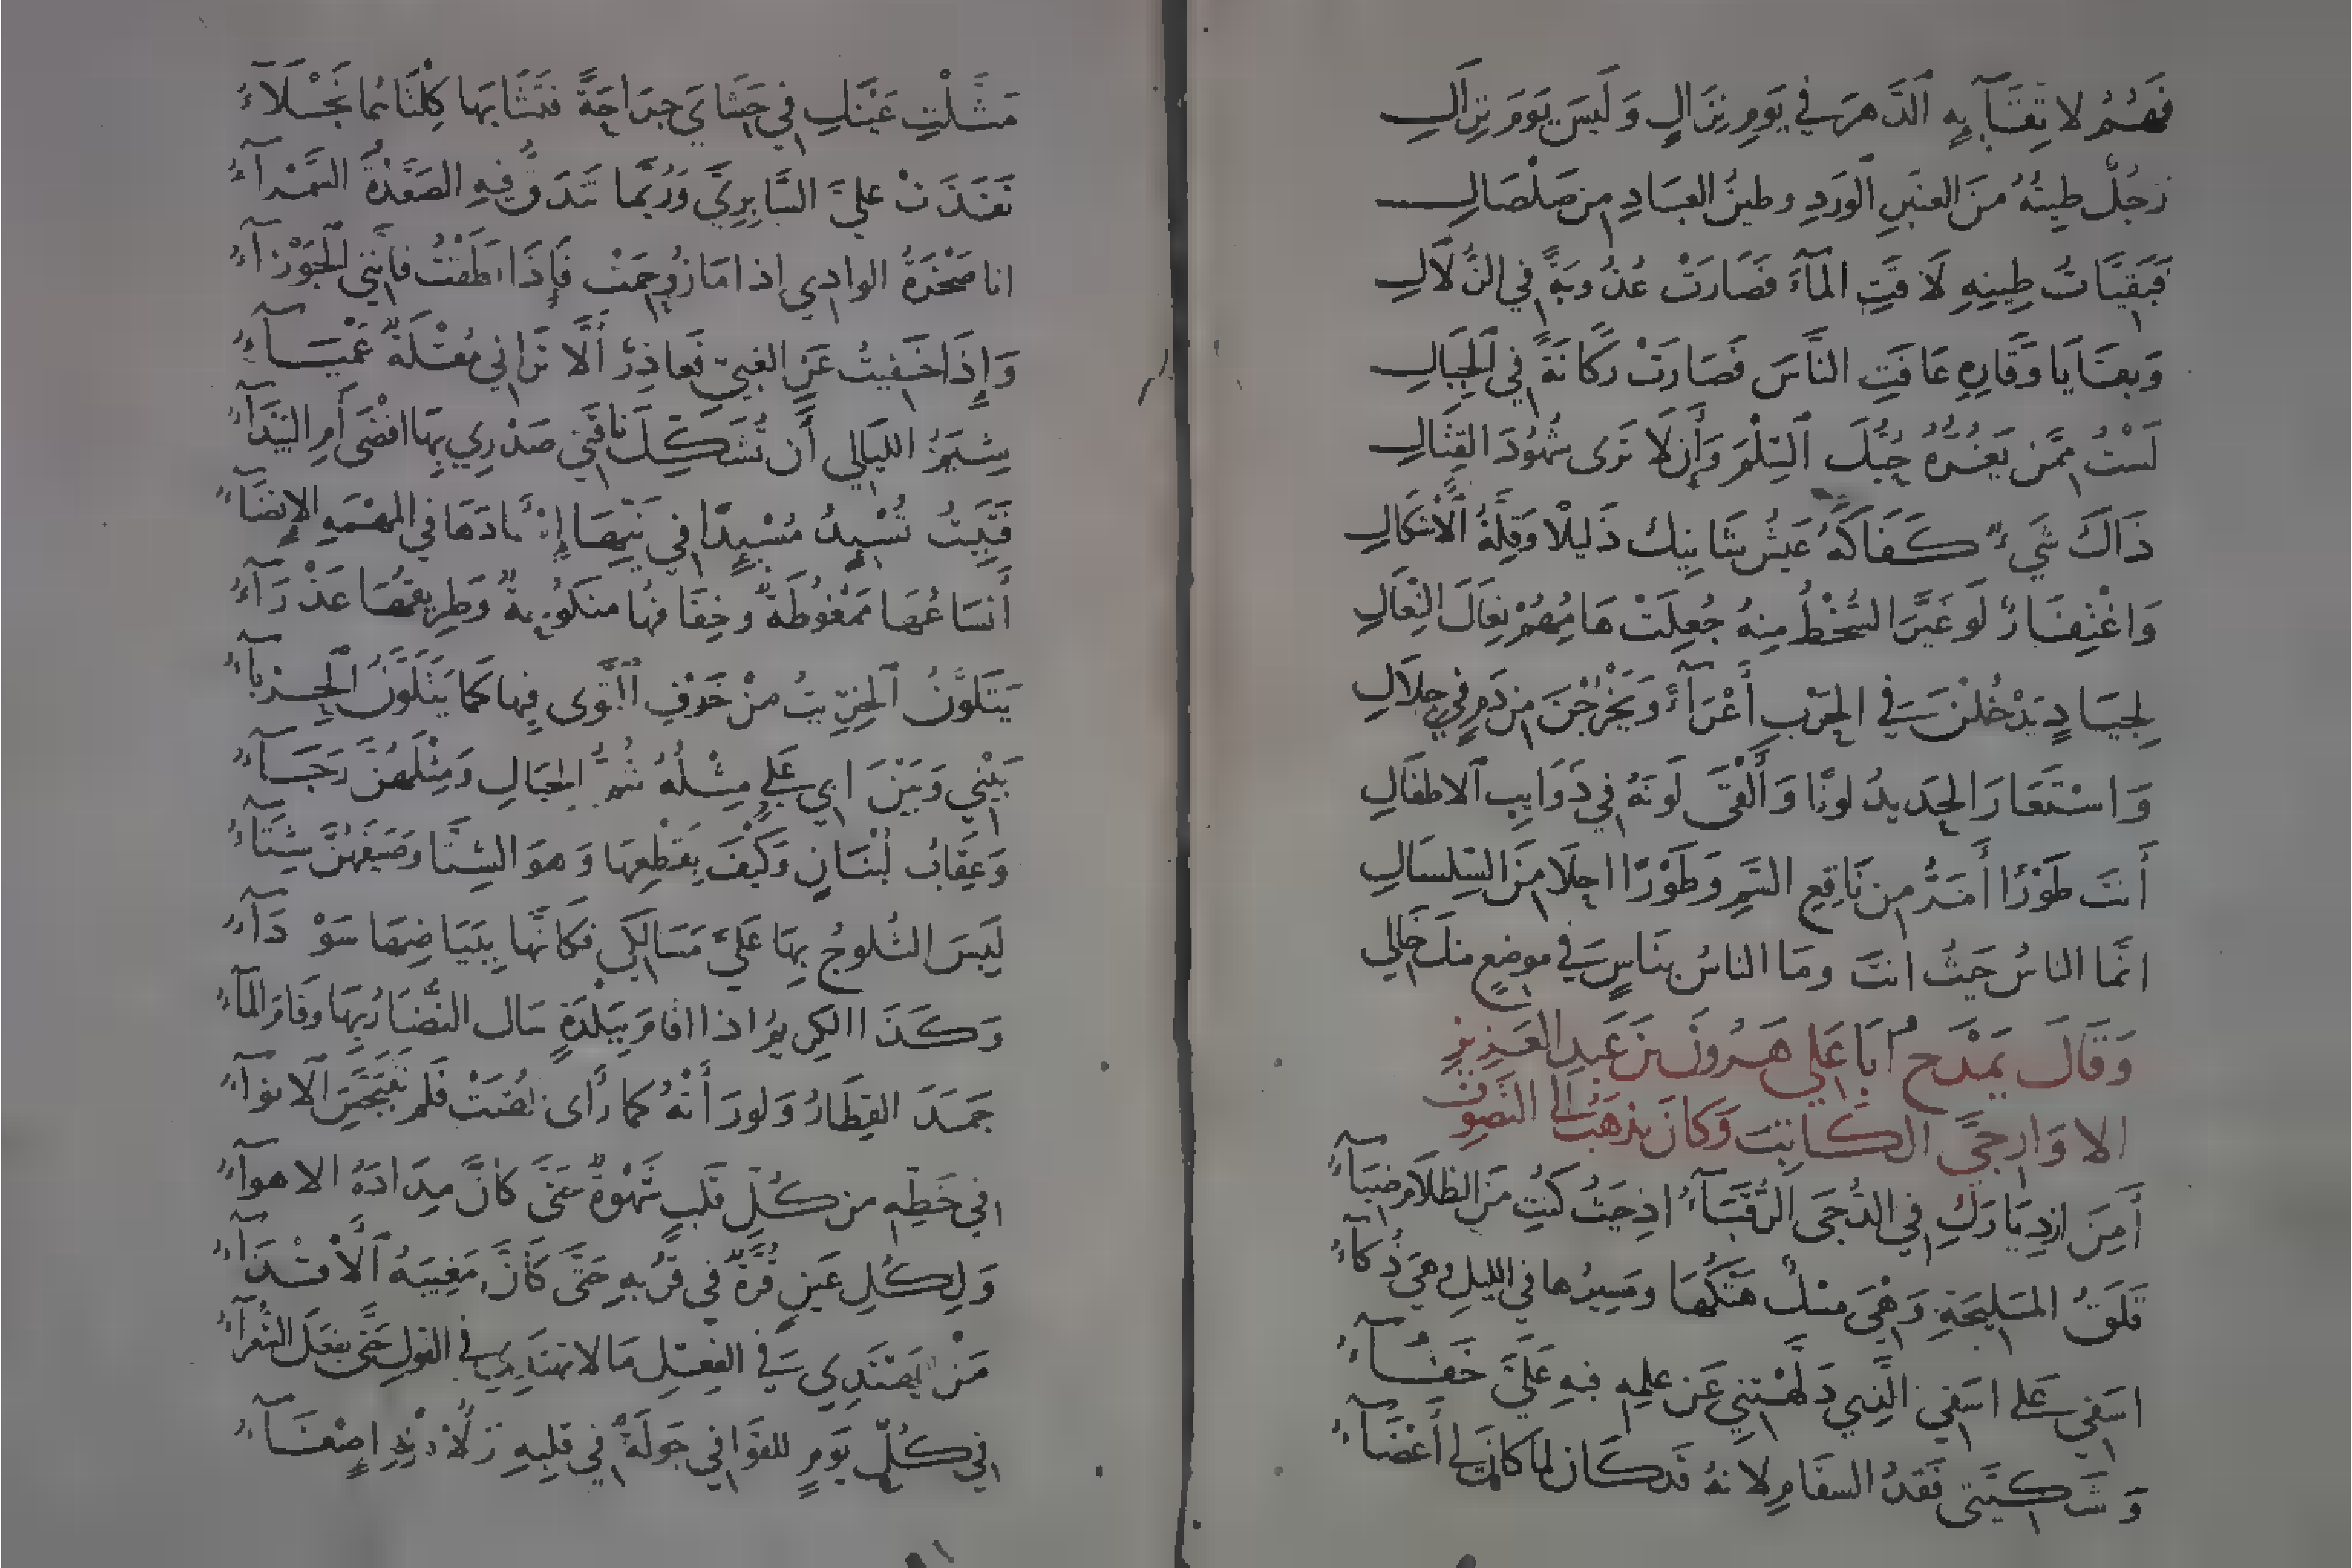 فَهُمُ لا تِقَآءِ بِهِ الدَّهرَ في يَومِ نِزَالٍ وَلَيسَ يَومَ نِزَالِ
رَجُلٌ طِينُهُ مِنَ العنبَرِ الوَردِ وطينُ العِبَادِ من صَلْصَالِ
فَبَقِيَّاتُ طِينِهِ لَاقَتِ المآءَ فَصَارَتْ عُذُوبَةً في الزُّلَالِ
وَبَقَايَا وَقَارِهِ عَافَتِ النَّاسَ فَصَارَتْ رَكَانَةً في الجِبَالِ
لَسْتُ مِمَّن يَغُرُّهُ حُبُّكَ السِّلْمَ وَأَن لَا تَرَى شُهُودَ القِتَالِ
ذَاكَ شَيءٌ كَفَاكَهُ عَيشُ شَانِيكَ ذَليلًا وَقِلَّةُ الأَشكَالِ
وَاغْتِفَارٌ لَو غَيَّرَ السُّخْطُ مِنهُ جُعِلَتْ هَامُهُمْ نِعَالَ النِّعَالِ
لِجِيَادٍ يَدْخُلْنَ في الحَرْبِ أَعْرَآءً وَيَخْرُجْنَ من دَمٍ في جِلَالِ
وَاسْتَعَارَ الحَدِيدُ لَونًا وَأَلْقَى لَونَهُ في ذَوَايِبِ الاطفَالِ
أَنتَ طَوْرًا أَمَرُّ من نَاقِعِ السَّمِ وَطَوْرًا احلَا مِنَ السِّلسَالِ
انَّما الناسُ حَيثُ انتَ وما الناسُ بِنَاسٍ في موضِعٍ منكَ خَالِي
وَقَالَ يَمْدَحُ أَبَا عَلي هَرُونَ بنَ عَبدِ العَزِيزِ
الاوَارجيَّ الكَاتِبَ وَكَانَ يَذهَبُ الى التَصَوُّف
أَمِنَ ازدِيَارَكِ في الدُّجَى الرُّقَبَآءُ اذ حَيثُ كُنتِ مِنَ الظلَامِ ضِيَآءُ
قَلَقُ المَلِيحَةِ وَهْيَ مِسْكٌ هَتْكُهَا ومَسِيرُها في الليلِ وهيَ ذُكَآءُ
اسَفي عَلى اسَفي الَّذِي دَلَّهْتِنِي عَن عِلمِهِ فبِهِ عَلَيَّ خَفَآءُ
وَشَكِيَّتي فَقدُ السقَامِ لانهُ قَد كَان لمَّا كَانَ لي أَعْضَآءُ
مَثَّلْتِ عَيْنَكِ في حَشَايَ جِرَاحَةً فَتَشَابَها كِلْتَاهُما نَجْلَآءُ
نَفَذَتْ عليَّ السَّابِرِيَّ وَرُبَّما تَندَقُّ فيهِ الصَّعْدَةُ السَّمْرَآءُ
انا صَخْرَةُ الوادِي إذا مَا زُوحِمَتْ فَإِذَا نَطَقْتُ فَإِنَّنِي الجَوْزَآءُ
وَإِذَا خَفِيتُ عَنِ الغَبيِّ فَعاذِرٌ أَلَّا تَرَاني مُقْلَةٌ عَمْيَآءُ
شِيَمُ الليَالي أَن تُشَكِّكَ نَاقَتِي صَدْرِي بِهَا افْضَى أَمِ البَيْدَآءُ
فَتَبِيتُ تُسْئِدُ مُسْئِدًا في نَيِّهَا إِسْآدَهَا في المَهْمَهِ الإِنضَآءُ
أَنسَاعُهَا مَمْغُوطَةٌ وخِفَافُهَا مَنكَوُحَةٌ وَطَرِيقُهَا عَذْرَآءُ
يَتَلَوَّنُ الخِرِّيتُ مِنْ خَوْفِ التَّوَى فِيها كَمَا يَتَلَوَّنُ الحِرْبَآءُ
بَيْنِي وَبَيْنَ ابي عَلِيٍّ مِثْلُهُ شُمُّ الجِبَالِ وَمِثْلَهُنَّ رَجَآءُ
وَعِقَابُ لُبْنَانٍ وَكَيْفَ بِقَطْعِهَا وَهوَ الشِّتَا وَصَيفُهُنَّ شِتَآءُ
لَبَسَ الثُلوجُ بِهَا عَلَيَّ مَسَالِكِي فَكَأنَّهَا بِبَيَاضِهَا سَوْدَآءُ
وَكَذَا الكَرِيمُ اذا اقامَ بِبَلْدَةٍ سَالَ النُّضَارُ بِهَا وَقَامَ المَآءُ
جَمَدَ القِطَارُ وَلَو رَأَتْهُ كمَا رَأَى بُهِتَتْ فَلَم تَتَبَجَّسِ الانوَآءُ
في خَطِّهِ من كُلِّ قَلبٍ شَهْوَةٌ حَتَّى كَأنَّ مِدَادَهُ الاهوآءُ
وَلِكُلِّ عَينٍ قُرَّةٌ في قُربِهِ حَتَّى كَأَنَّ مَغِيبَهُ الأَقْذَآءُ
مَنْ يَهتَدِي في الفِعْلِ مَا لا تهتَدِي في القَولِ حَتَّى يَفعَلَ الشُعَرَآءُ
في كُلِّ يَومٍ للقوَافي جَولَةٌ في قَلبِهِ وَلِأُذْنِهِ إِصْغَآءُ